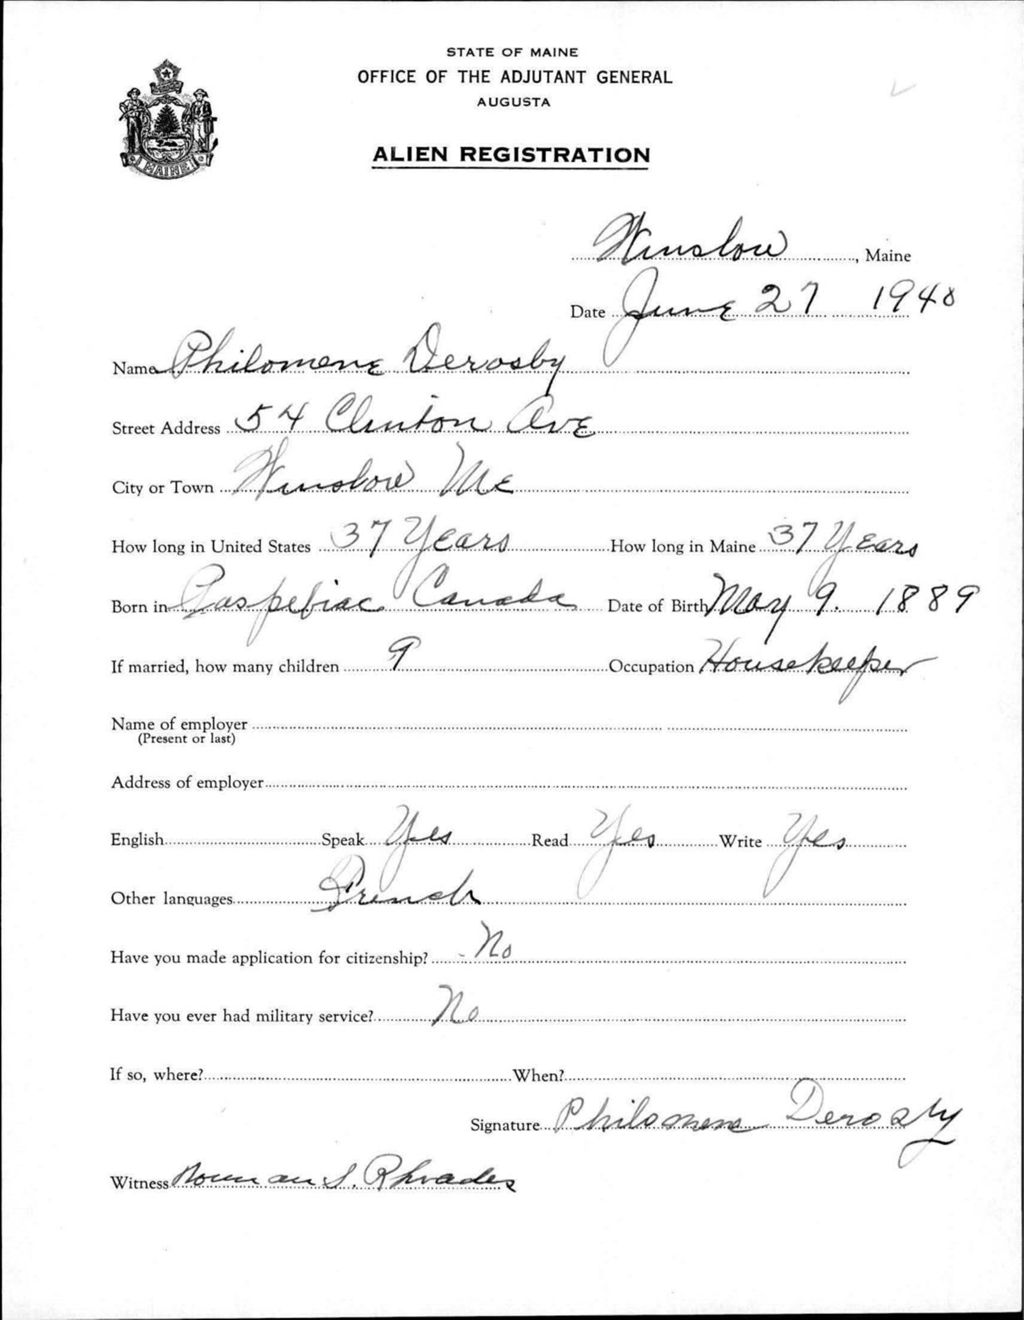 STATE OF MAINE
OFFICE OF THE ADJUTANT GENERAL
AUGUSTA
ALIEN REGISTRATION
MAINE
Winslow, Maine
Date June 27 1940
Name Philomene Derosby
Street Address 54 Clinton Ave
City or Town Winslow Me
How long in United States 37 Years How long in Maine 37 Years
Born in Paspebiac Canada Date of Birth May 9. 1889
If married, how many children 9 Occupation Housekeeper
Name of employer
(Present or last)
Address of employer
English Speak Yes Read Yes Write Yes
Other languages French
Have you made application for citizenship? - No
Have you ever had military service? No
If so, where? When?
Signature Philomene Derosby
Witness Norman S. Rhoades